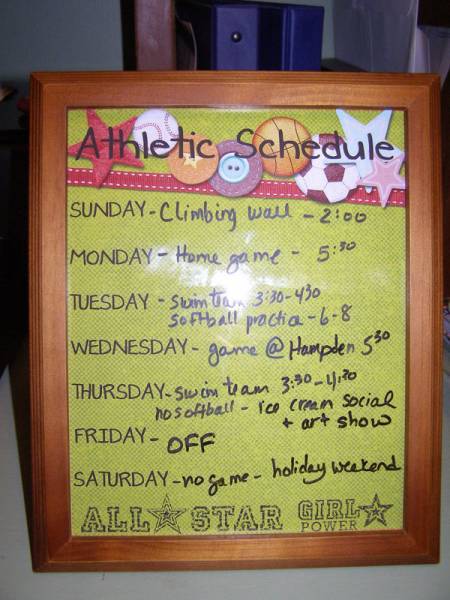 Athletic Schedule
SUNDAY - Climbing wall - 2:00
MONDAY - Home game - 5:30
TUESDAY - swim team 3:30-430
softball practice - 6-8
WEDNESDAY - game @ Hampden 530
THURSDAY - swim team 3:30-4:30
no softball - ice cream social
+ art show
FRIDAY - OFF
SATURDAY - no game - holiday weekend
ALL STAR GIRL
POWER